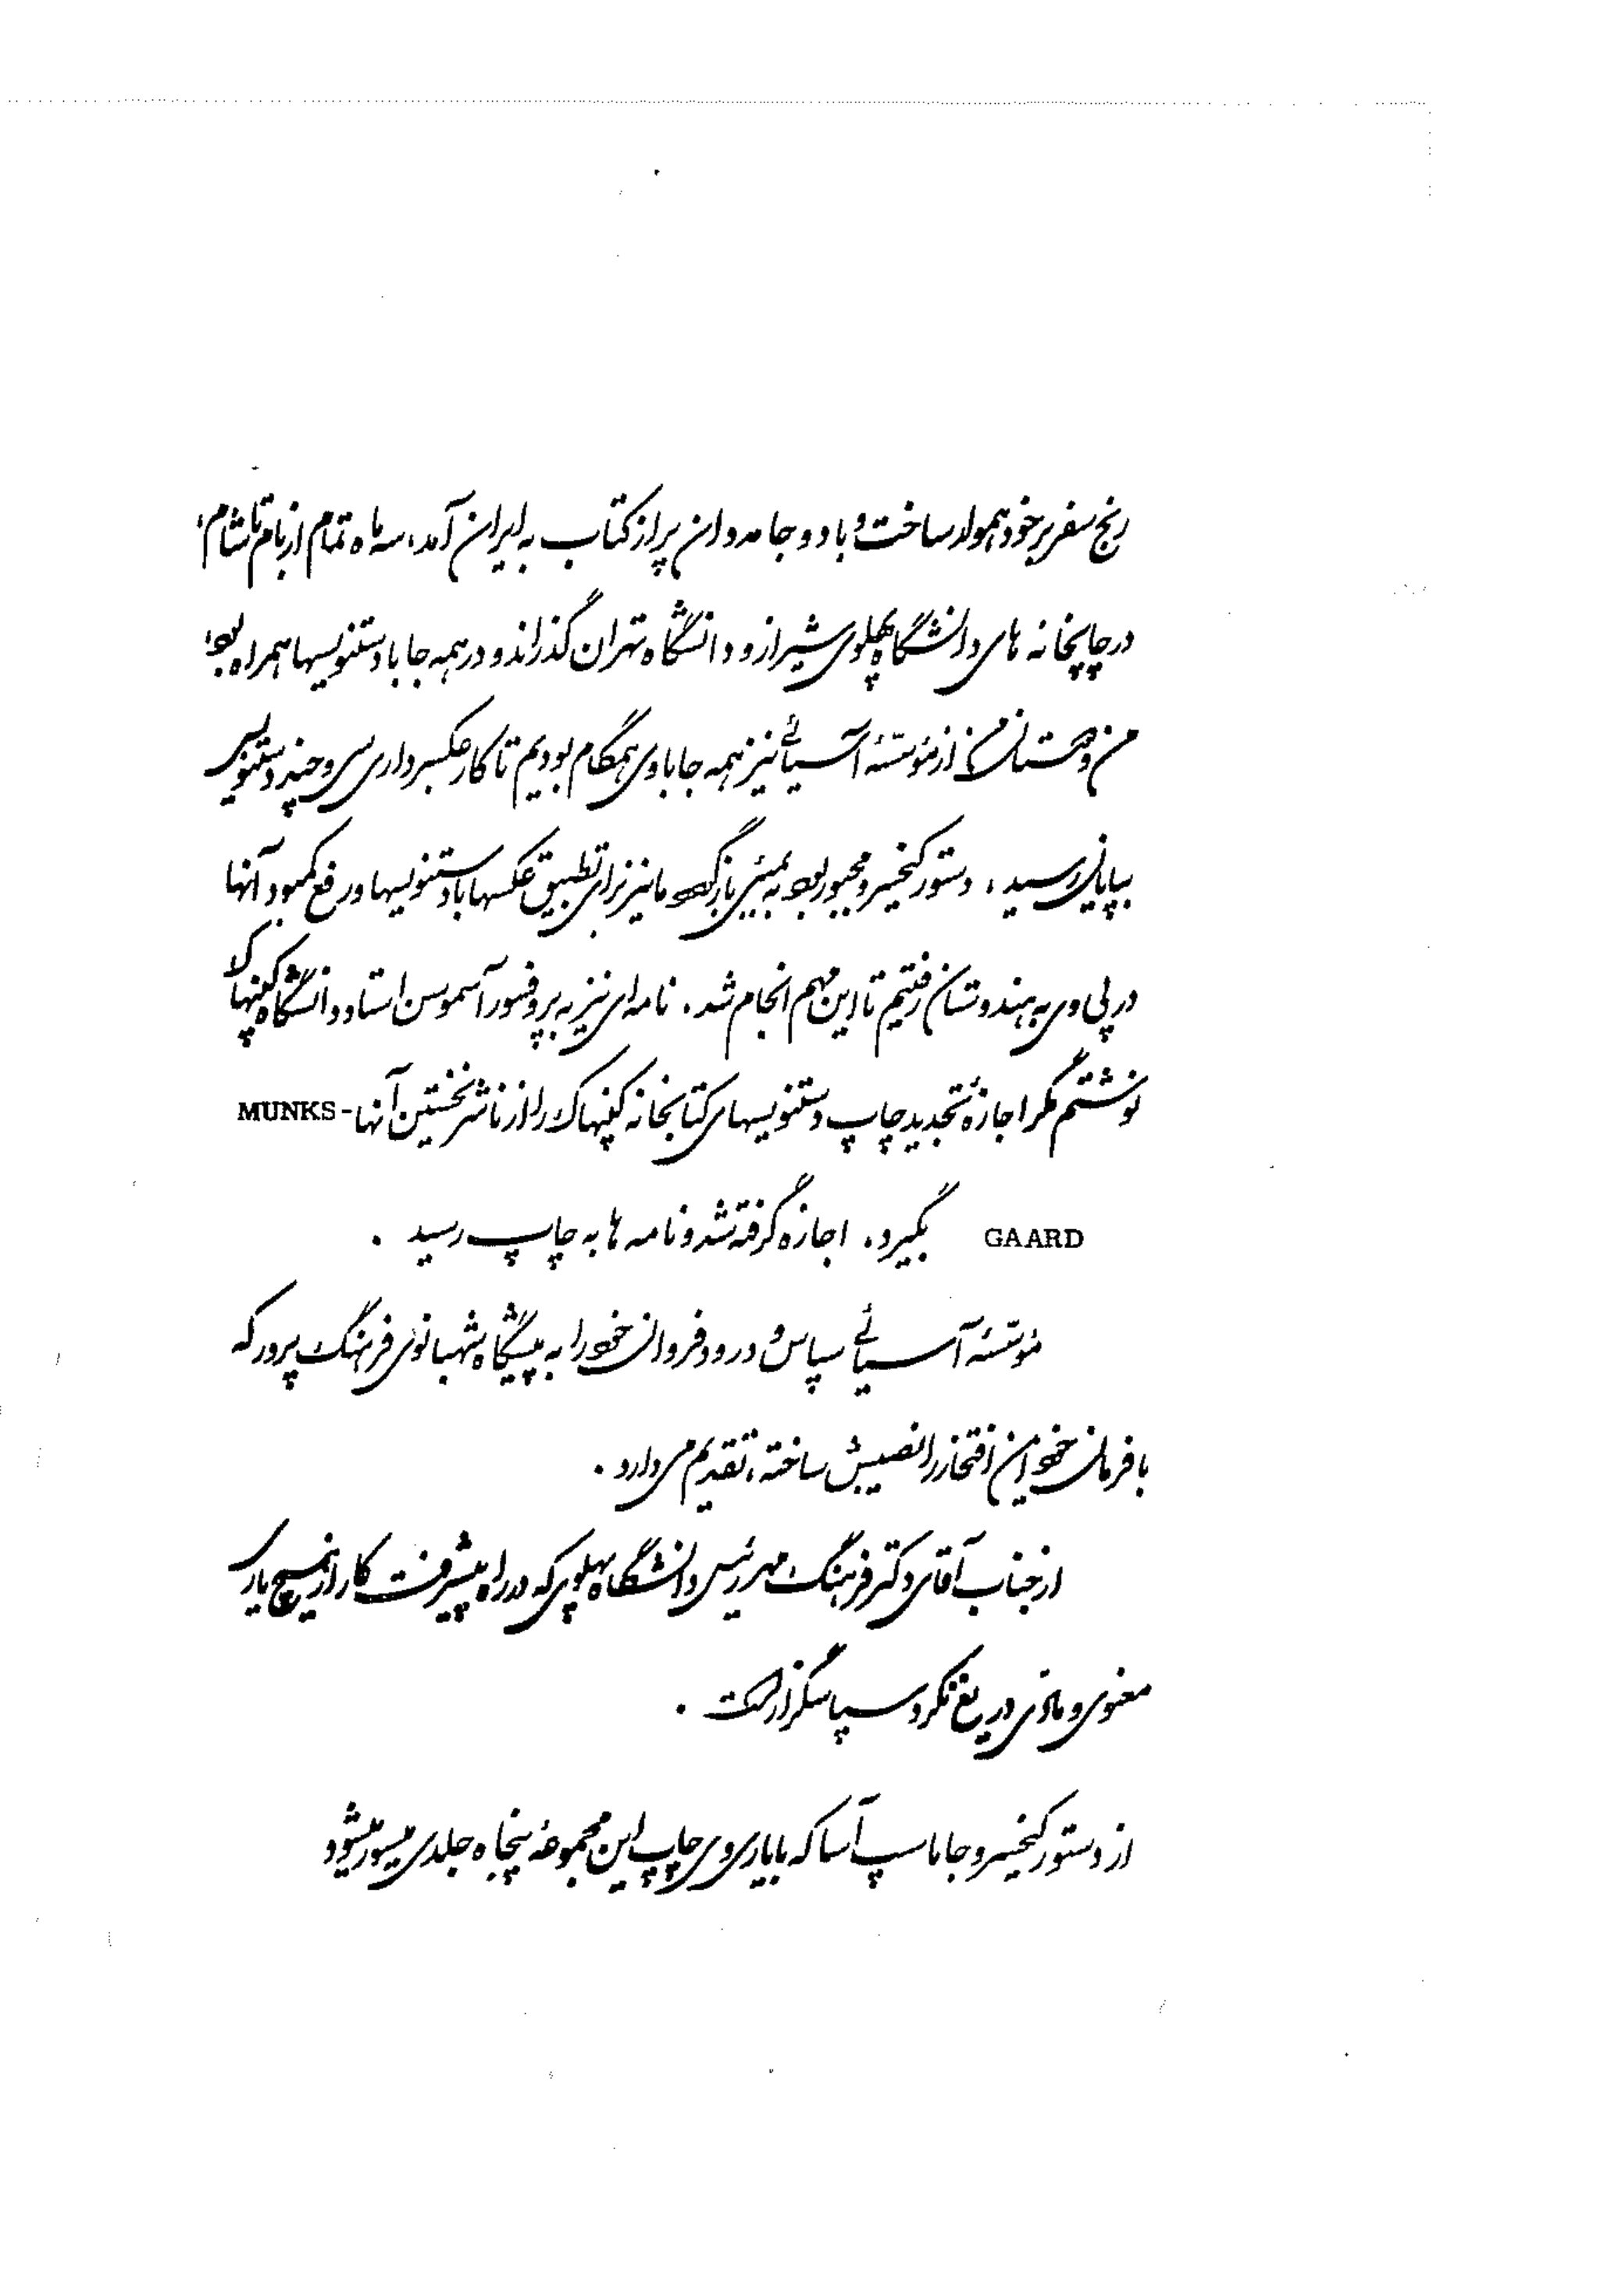 رنج سفر بر خود هموار ساخت و با دو جامه‌دان پر از کتاب به ایران آمد، سه ماه تمام از بام تا شام،
در چاپخانه های دانشگاه پهلوی شیراز و دانشگاه تهران گذراند و در همه جا با دستنویسها همراه بود؛
من و همستان من از مؤسسهٔ آسیائی نیز همه جا با وی همگام بودیم تا کار عکسبرداری سی و چند دستنویس
بپایان رسید، دستور کیخسرو مجبور بود به بمبئی بازگردد ما نیز برای تطبیق عکسها با دستنویسها و رفع کمبود آنها
در پی وی به هندوستان رفتیم تا این مهم انجام شد. نامه ای نیز به پروفسور آسموسن استاد دانشگاه کپنهاک
نوشتم مگر اجازهٔ تجدید چاپ دستنویسهای کتابخانه کپنهاک را از ناشر نخستین آنها MUNKS-
GAARD بگیرد. اجازه گرفته شد و نامه ها به چاپ رسید.
مؤسسهٔ آسیائی سپاس و درود فروان خود را به پیشگاه شهبانوی فرهنگ پرور که
با فرمان خود این افتخار را نصیبش ساخته، تقدیم می دارد.
از جناب آقای دکتر فرهنگ مهر رئیس دانشگاه پهلوی که در راه پیشرفت کار از هیچ یاری
معنوی و مادی دریغ نکرد سپاسگزار است.
از دستور کیخسرو جاماسپ آسا که با یاری وی چاپ این مجموعهٔ پنجاه جلدی میسور میشود